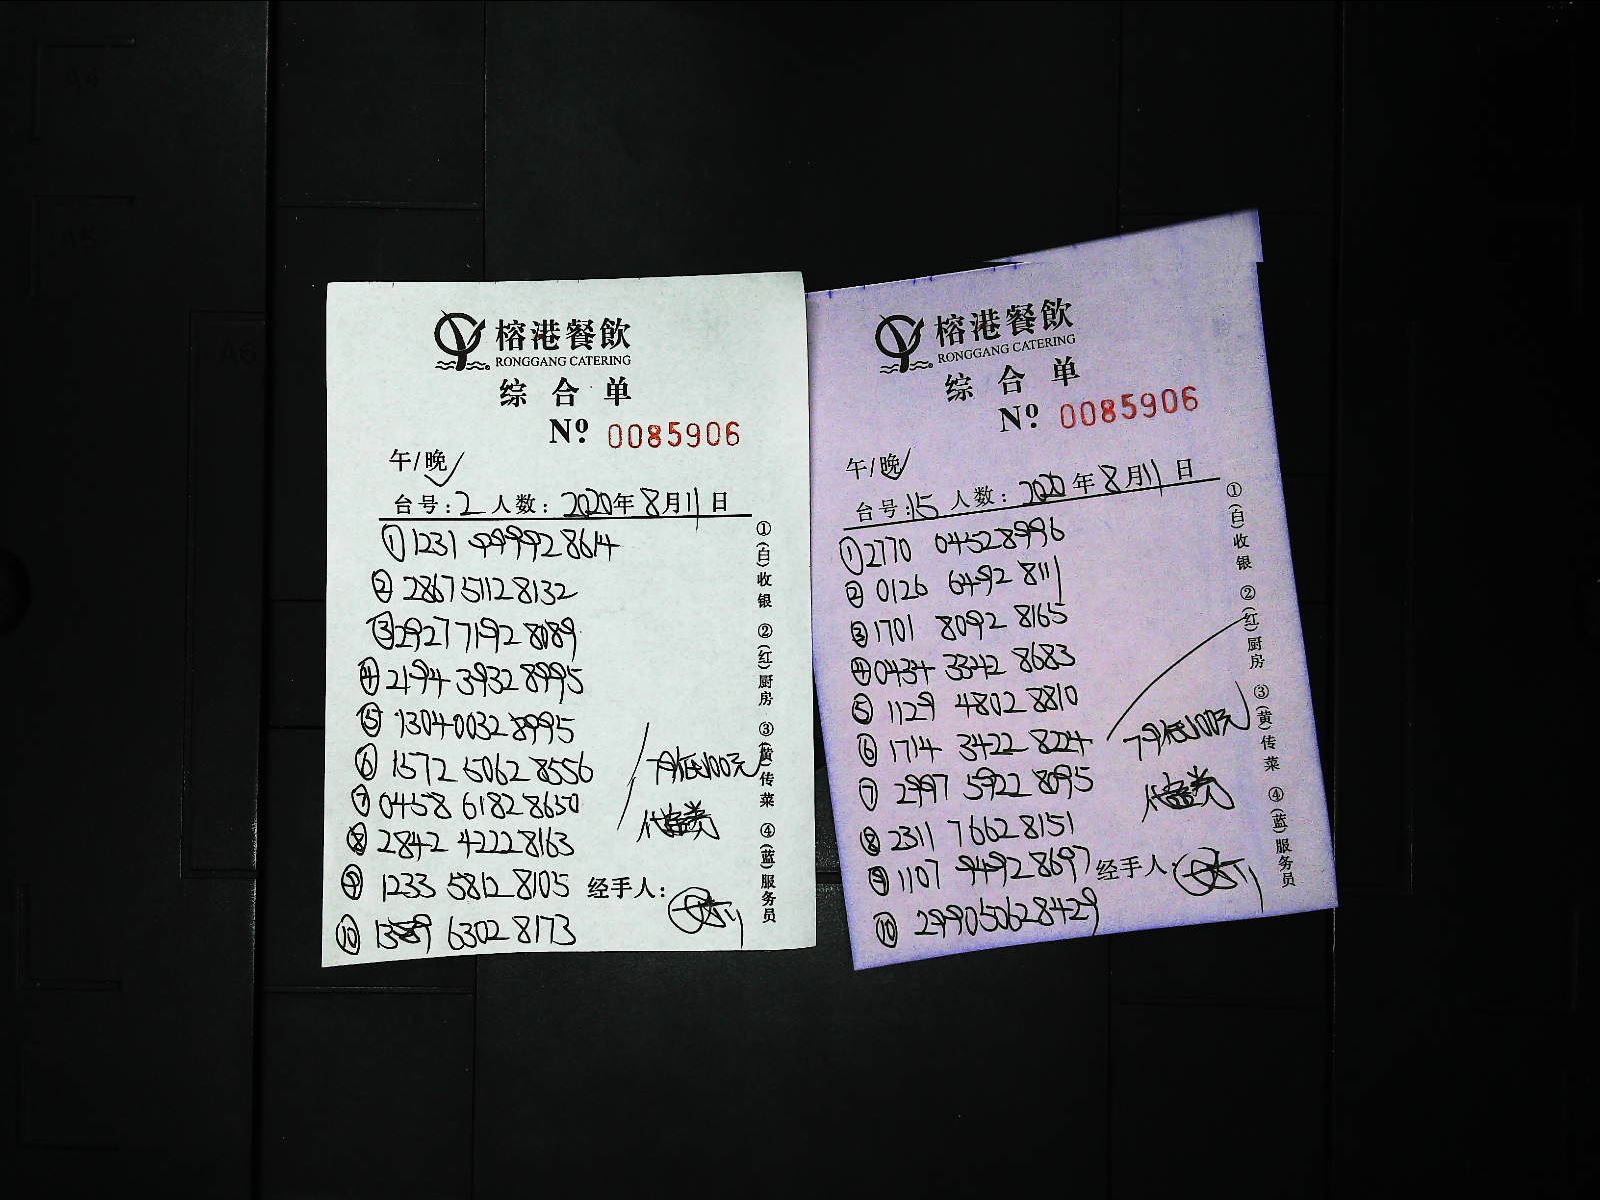 榕港餐飲
RONGGANG CATERING
综合单
Nº 0085906
午/晚✓
台号:2 人数: 2020年8月11日
① 1231 999928614
② 286751128132
③ 292771928089
④ 2194 39328995
⑤ 130400328995
⑥ 1572 50628556
⑦ 0458 61828650
⑧ 2842 42228163
⑨ 1233 58128105
⑩ 63028173
7月低100元
代
经手人:
①(白)收银 ②(红)厨房 ③(黄)传菜 ④(蓝)服务员
榕港餐飲
RONGGANG CATERING
综合单
Nº 0085906
午/晚✓
台号:15 人数: 2020年8月11日
① 2770 04528996
② 0126 6492 8111
③ 1701 8092 8165
④ 0434 3342 8683
⑤ 1129 4802 8810
⑥ 1714 3422 8224
⑦ 2997 5922 8095
⑧ 2311 76628151
⑨ 1107 94928697
⑩ 299050628429
7月低100元
代
经手人:
①(白)收银 ②(红)厨房 ③(黄)传菜 ④(蓝)服务员